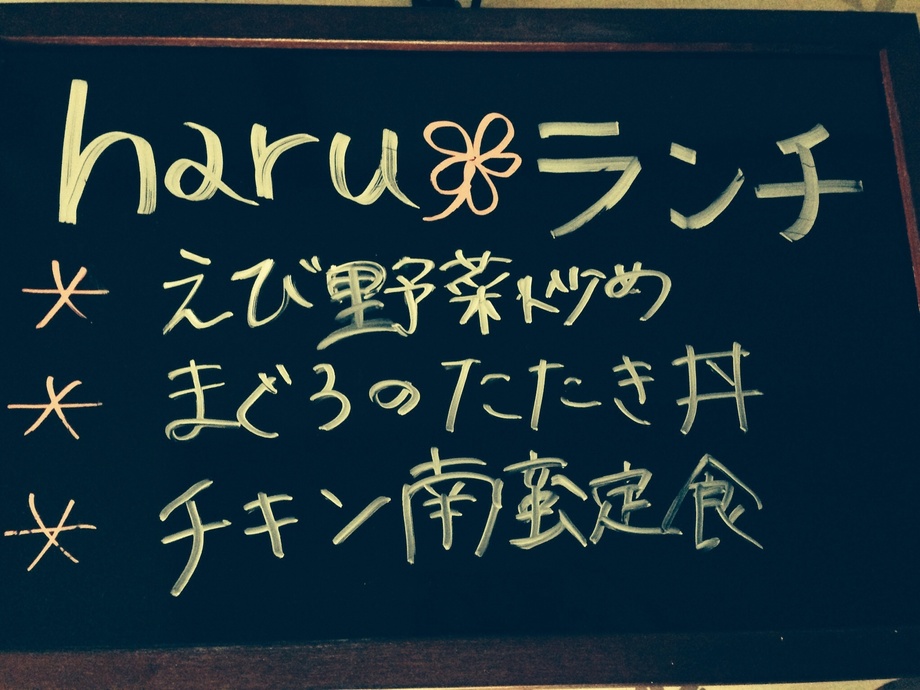 haru ランチ
* えび野菜炒め
* まぐろのたたき丼
* チキン南蛮定食